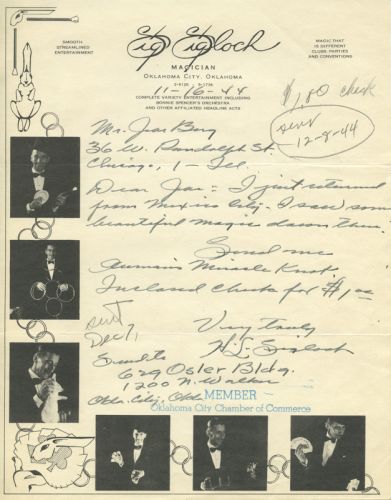 SMOOTH
STREAMLINED
ENTERTAINMENT
Sig Sigloch
MAGIC THAT
IS DIFFERENT
CLUBS, PARTIES
AND CONVENTIONS
MAGICIAN
OKLAHOMA CITY, OKLAHOMA
11-16-44
COMPLETE VARIETY ENTERTAINMENT INCLUDING
BONNIE SPENCER'S ORCHESTRA
AND OTHER AFFILIATED HEADLINE ACTS
check
sent
12-8-44
Mr. Joe Berg
36 W. Randolph St.
Chicago, 1 - Ill.
Dear Joe: - I just returned
from Mexico City. I saw some
beautiful magic down there.
Send me
Miracle Knot.
Inclosed Check for $1.00
sent
Dec 7,
Very truly
H. L. Sigloch
Send to
629 Osler Bldg.
1200 N. Walker
Okla. City, Okla
MEMBER
Oklahoma City Chamber of Commerce